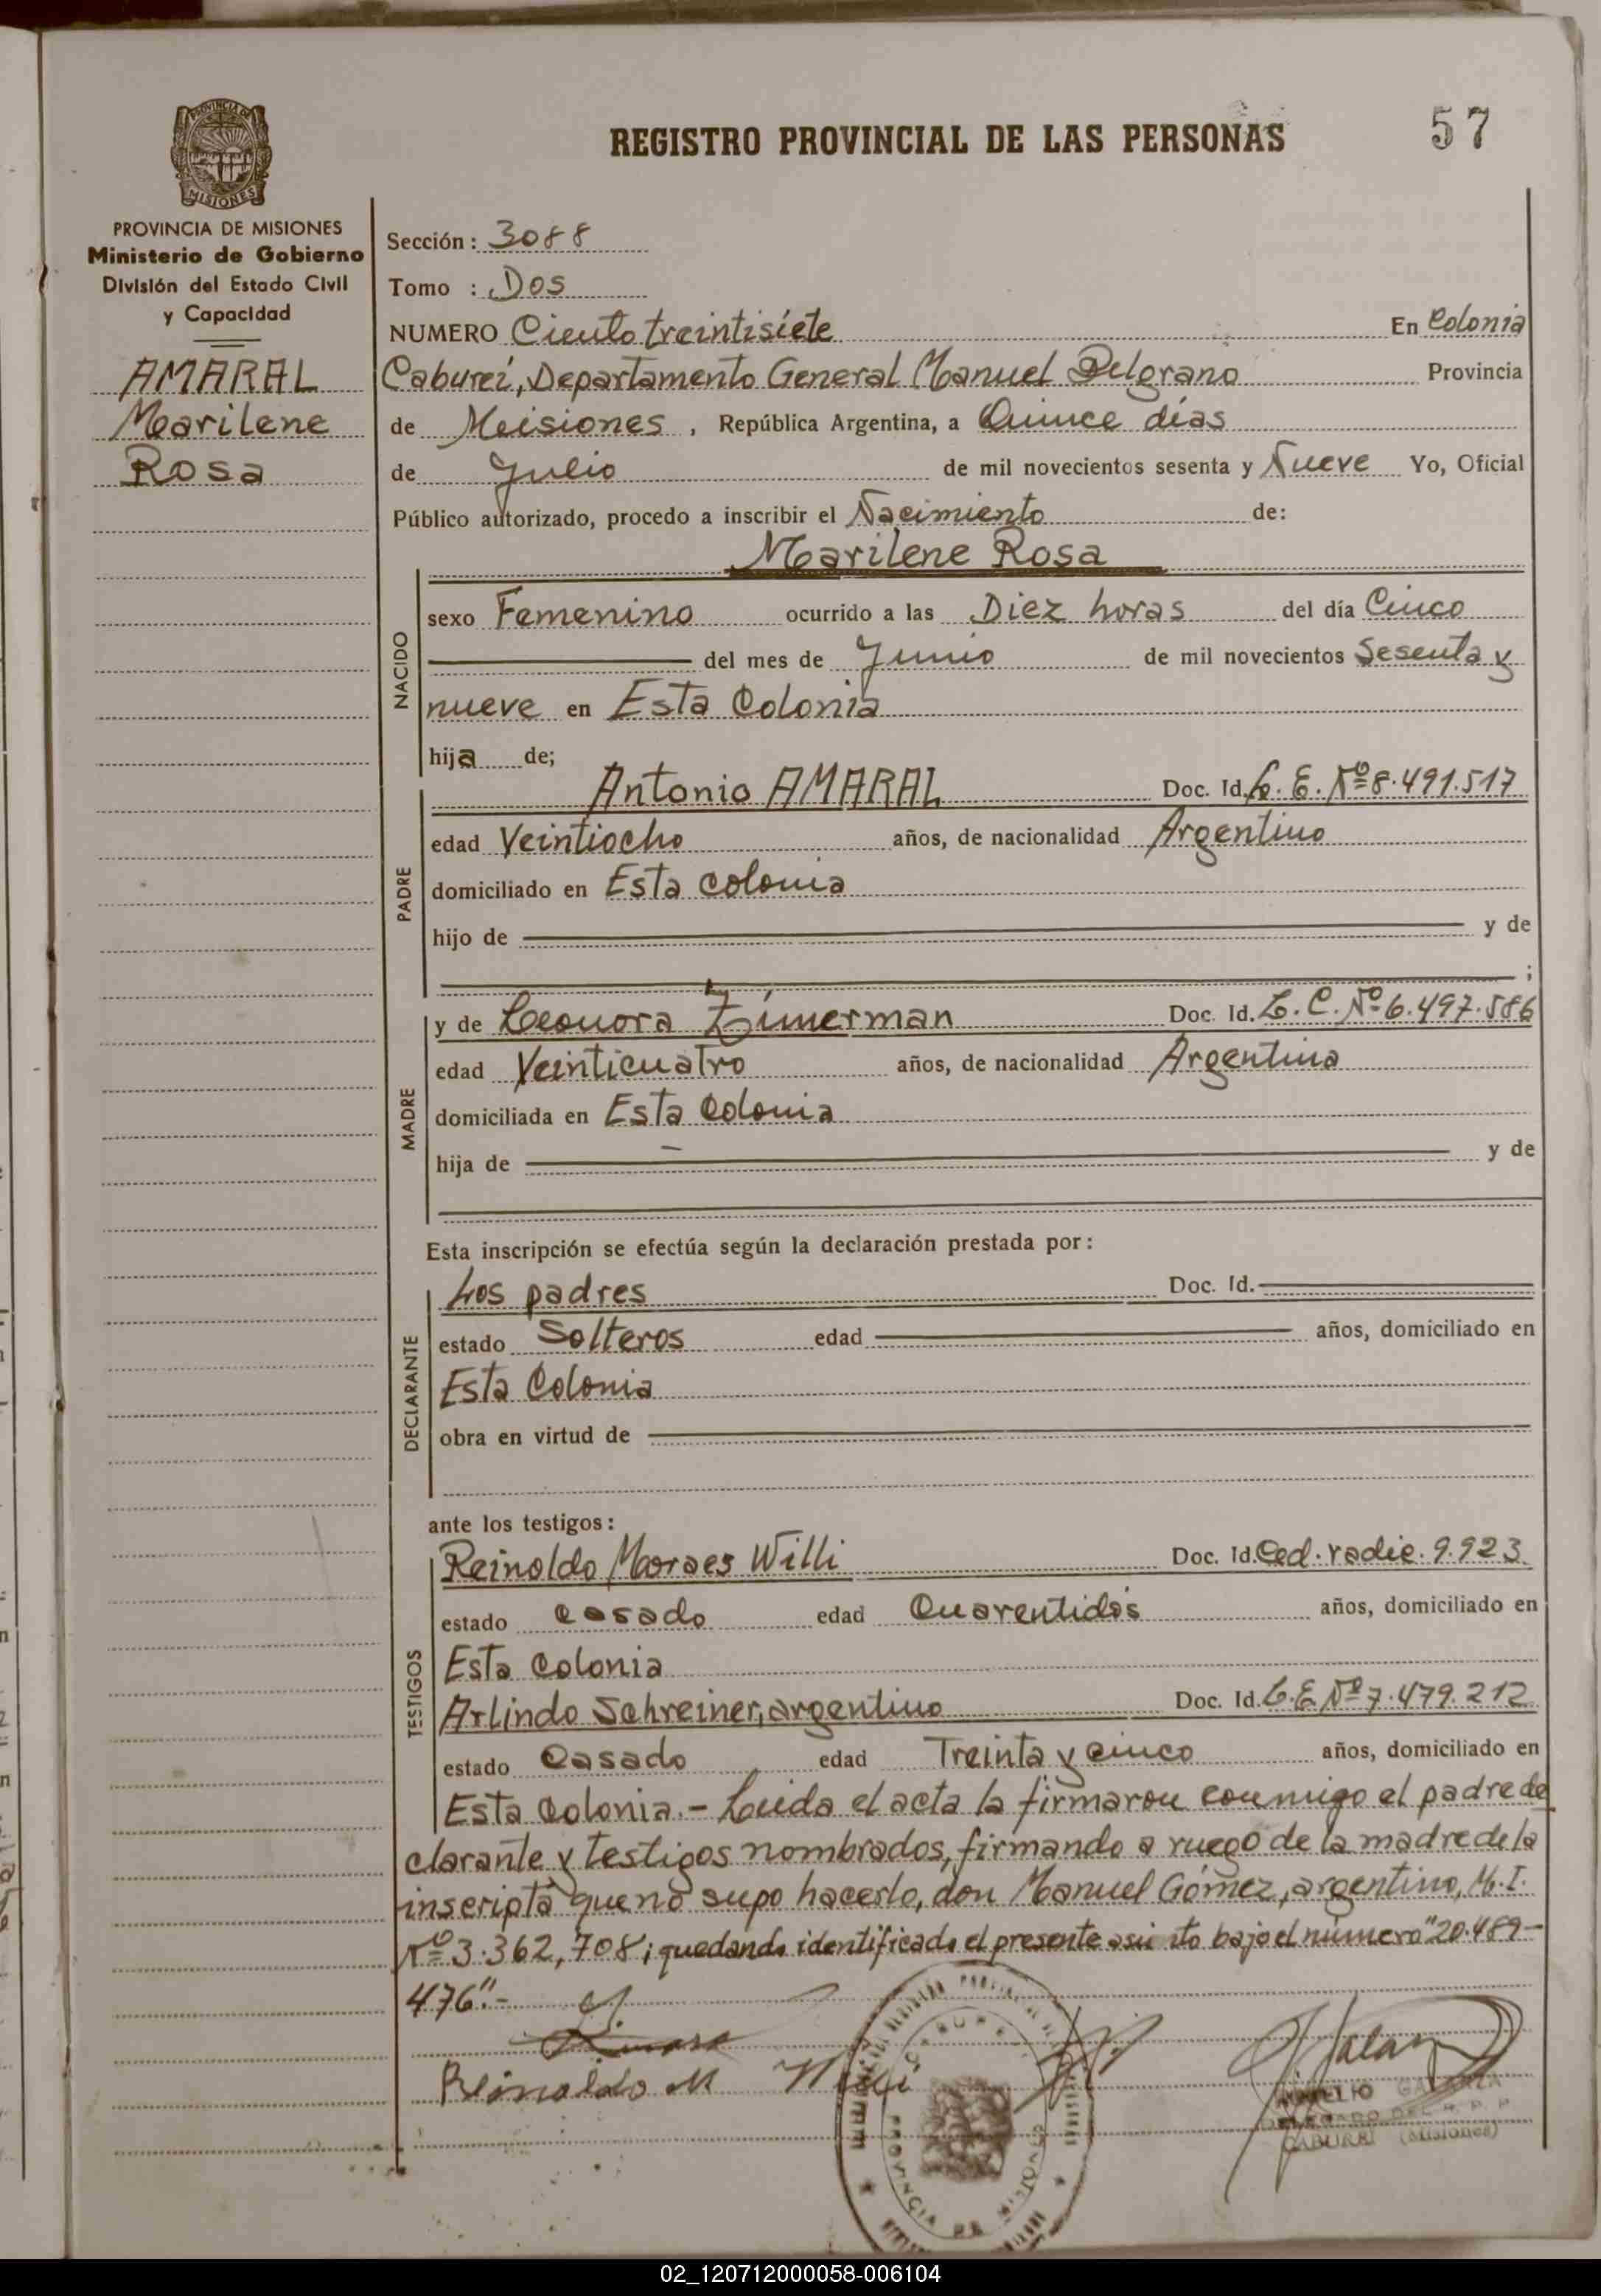 57
REGISTRO PROVINCIAL DE LAS PERSONAS
PROVINCIA DE
MISIONES
PROVINCIA DE MISIONES
Ministerio de Gobierno
División del Estado Civil
y Capacidad
AMARAL
Marilene
Rosa
Sección: 3088
Tomo : Dos
NUMERO Ciento treintisiete En Colonia
Caburei, Departamento General Manuel Belgrano Provincia
de Misiones, República Argentina, a Quince días
de Julio de mil novecientos sesenta y Nueve Yo, Oficial
Público autorizado, procedo a inscribir el Nacimiento de:
Marilene Rosa
NACIDO
sexo Femenino ocurrido a las Diez horas del día Cinco
del mes de Junio de mil novecientos Sesenta y
nueve en Esta Colonia
hija de;
PADRE
Antonio AMARAL Doc. Id. L. E. Nº 8.491.517
edad Veintiocho años, de nacionalidad Argentino
domiciliado en Esta colonia
hijo de y de
;
MADRE
y de Leonora Zimerman Doc. Id. L. C. Nº 6.497.586
edad Veinticuatro años, de nacionalidad Argentina
domiciliada en Esta Colonia
hija de y de
Esta inscripción se efectúa según la declaración prestada por:
DECLARANTE
Los padres Doc. Id.
estado Solteros edad años, domiciliado en
Esta Colonia
obra en virtud de
ante los testigos:
TESTIGOS
Reinoldo Moraes Willi Doc. Id. Ced. radic. 9.923
estado casado edad Cuarentidós años, domiciliado en
Esta colonia
Arlindo Schreiner, argentino Doc. Id. L.E. Nº 7.479.212
estado Casado edad Treinta y cinco años, domiciliado en
Esta Colonia.- Leída el acta la firmaron conmigo el padre de
clarante y testigos nombrados, firmando a ruego de la madre de la
inscripta que no supo hacerlo, don Manuel Gómez, argentino, M.I.
Nº 3.362,708; quedando identificado el presente asiento bajo el número "20.489-
476".-
Reinoldo M
PROVINCIA DE
DELEGADO DEL R. P. P.
CABUREI (Misiones)
02_120712000058-006104